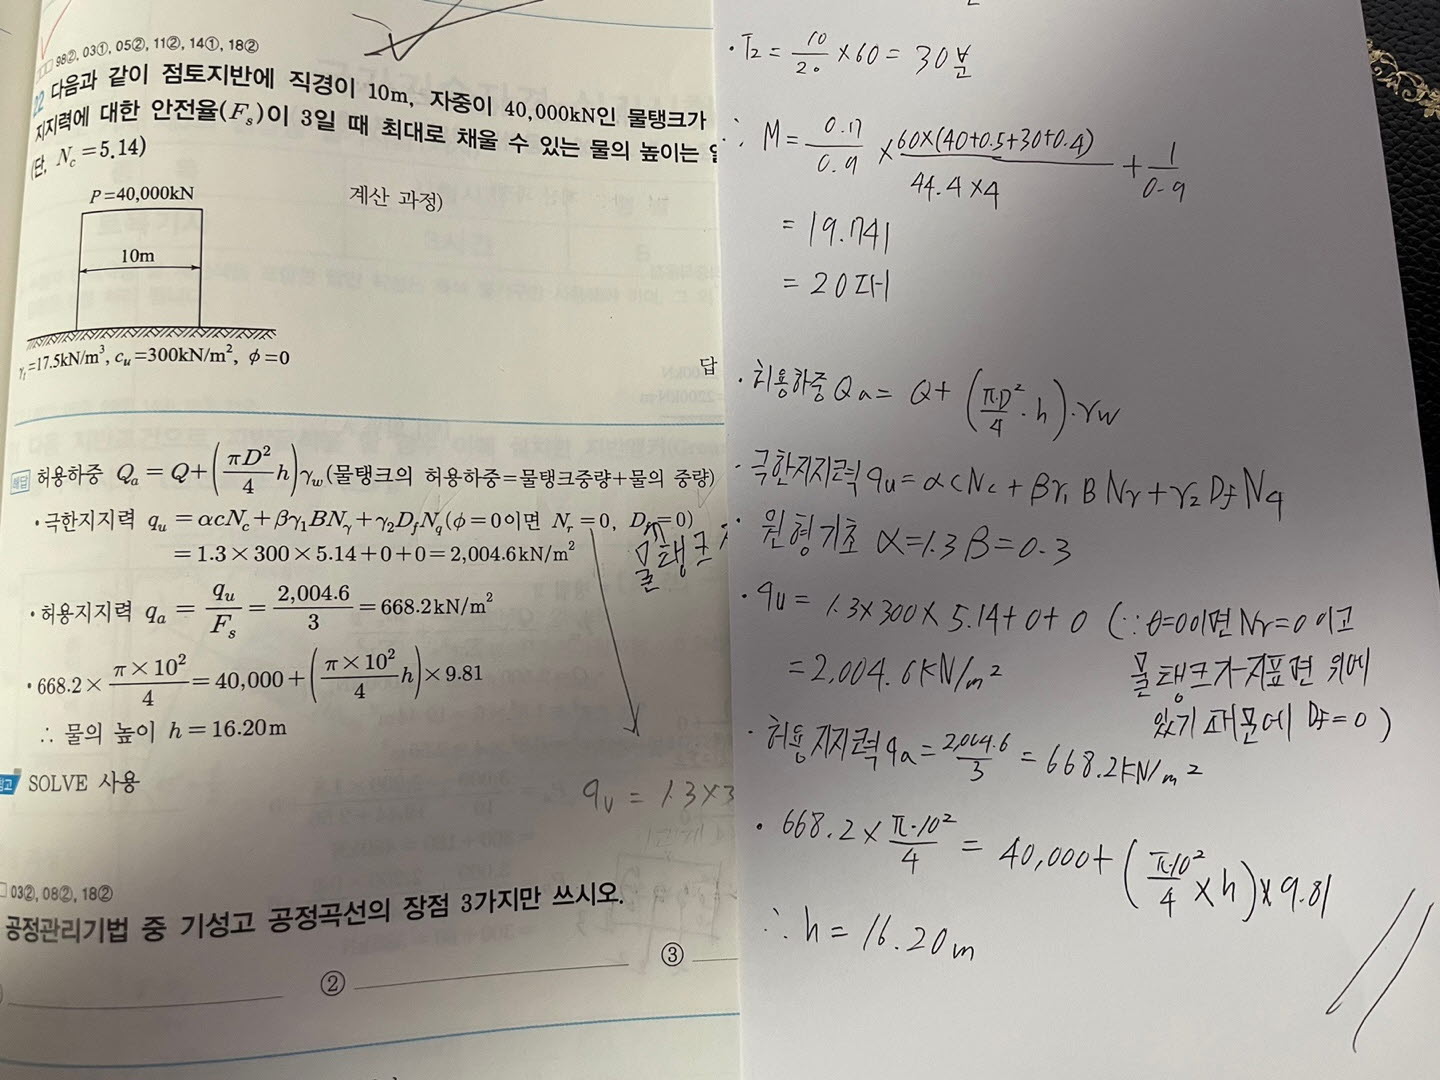 98②, 03①, 05②, 11②, 14①, 18②
22 다음과 같이 점토지반에 직경이 10m, 자중이 40,000kN인 물탱크가
지지력에 대한 안전율(Fs)이 3일 때 최대로 채울 수 있는 물의 높이는
(단, Nc=5.14)
P=40,000kN
계산 과정)
10m
γt=17.5kN/m³, cu=300kN/m², φ=0
답
해답 허용하중 Qa = Q+(πD²/4 h)γw(물탱크의 허용하중=물탱크중량+물의 중량)
• 극한지지력 qu = αcNc+βγ1BNγ+γ2DfNq(φ=0이면 Nr=0, Df=0)
= 1.3×300×5.14+0+0=2,004.6kN/m²
물탱크
• 허용지지력 qa = qu/Fs = 2,004.6/3 = 668.2kN/m²
• 668.2× π×10²/4 = 40,000+(π×10²/4 h)×9.81
∴ 물의 높이 h=16.20m
참고 SOLVE 사용
qu = 1.3×3
03②, 08②, 18②
공정관리기법 중 기성고 공정곡선의 장점 3가지만 쓰시오.
② ③
· T2 = 10/20 ×60 = 30분
∴ M = 0.17/0.9 × 60×(40+0.5+30+0.4)/44.4×4 + 1/0.9
= 19.741
= 20대
· 허용하중 Qa = Q+ (πD²/4 · h)·γw
· 극한지지력 qu = αcNc + βγ1 B Nγ + γ2 Df Nq
· 원형기초 α=1.3 β=0.3
· qu = 1.3×300×5.14+0+0 (∵ θ=0이면 Nr=0 이고
= 2,004.6KN/m² 물탱크가 지표면 위에
있기 때문에 Df=0)
· 허용지지력 qa = 2,004.6/3 = 668.2KN/m²
· 668.2× π·10²/4 = 40,000+ (π·10²/4 × h)×9.81
∴ h = 16.20m